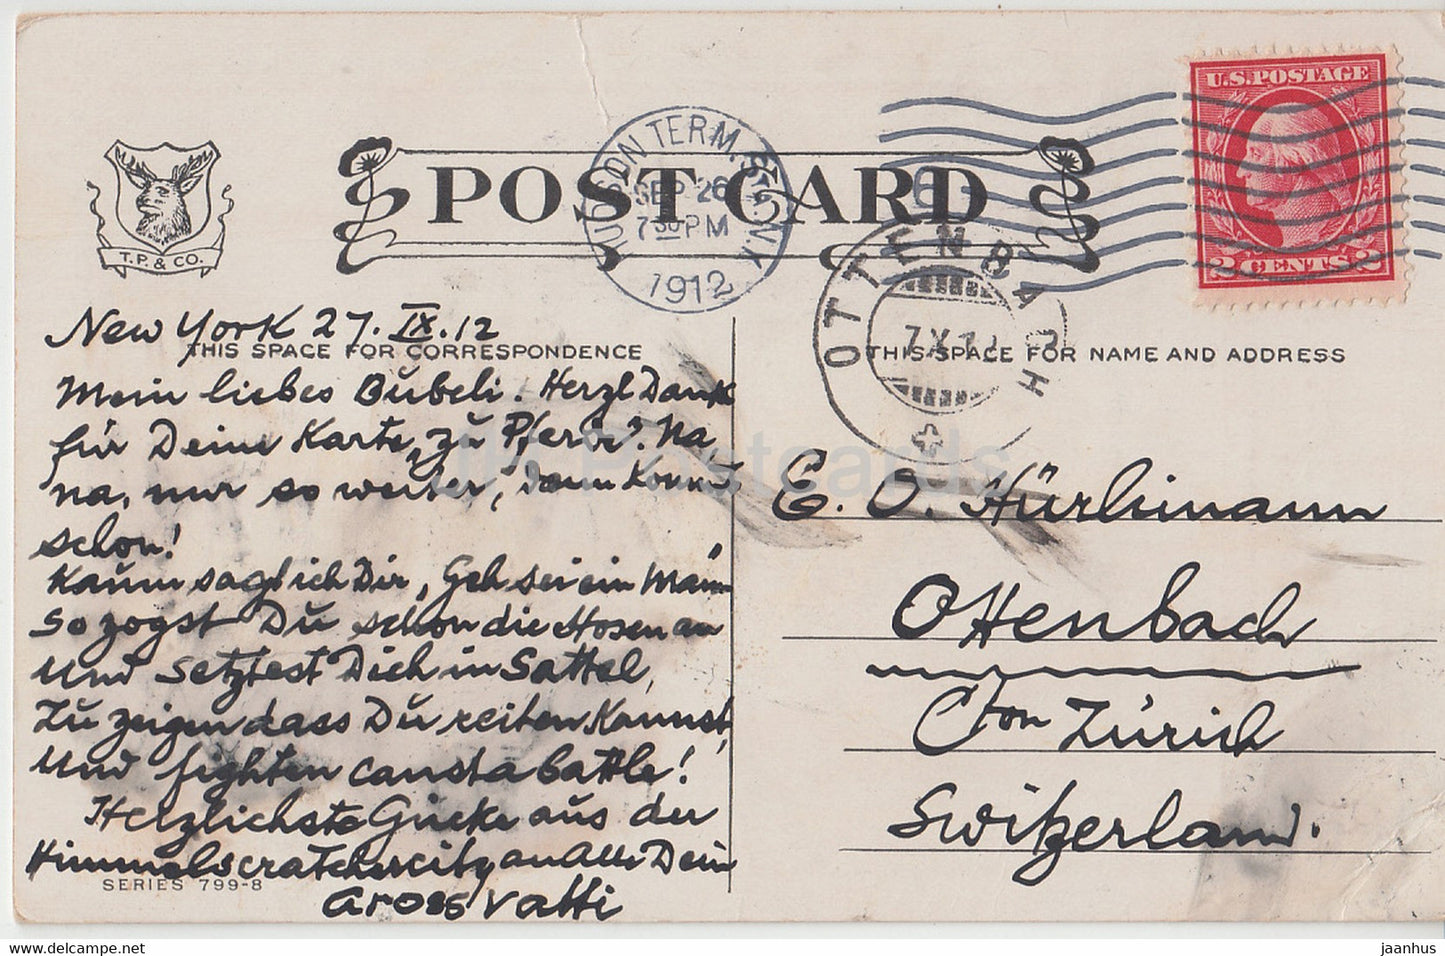 U.S. POSTAGE
2 CENTS 2
HUDSON TERM. STA. N.Y.
SEP 26
7 30 PM
1912
T. P. & CO.
POST CARD
OTTENBACH
7. X. 12
New York 27. IX. 12
THIS SPACE FOR CORRESPONDENCE
THIS SPACE FOR NAME AND ADDRESS
Mein liebes Bubeli. Herzl Dank
für Deine Karte „zu Pferd". Na,
na, nur so weiter, dann kommts
schon!
Kaum sagt ich Dir „Geh sei ein Mann"
So zogst Du schon die Hosen an
Und setztest Dich in Sattel,
Zu zeigen dass Du reiten kannst,
Und fighten canst a battle!
Herzlichste Grüße aus der
Himmelscratchercity an Alle Dein
Grossvatti
SERIES 799-8
E. O. Hürlimann
Ottenbach
Cton Zürich
Switzerland.
JH Postcards
jaanhus